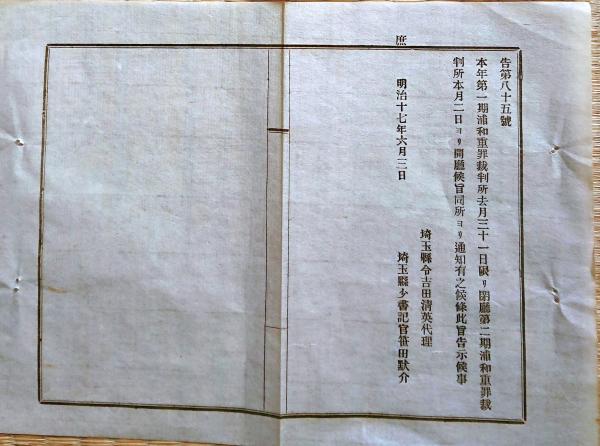 告第八十五號
本年第一期浦和重罪裁判所去月三十一日限リ閉廳第二期浦和重罪裁
判所本月二日ヨリ開廳候旨同所ヨリ通知有之候條此旨告示候事
明治十七年六月三日
埼玉縣令吉田淸英代理
埼玉縣少書記官笹田默介
庶